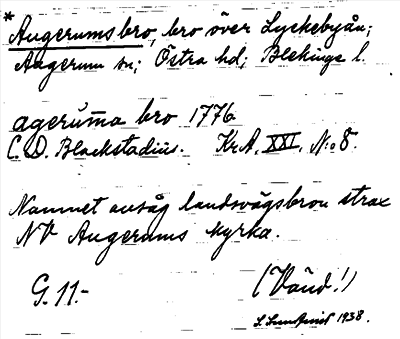 * Augerums bro, bro över Lyckebyån;
Augerum sn; Östra hd; Blekinge l.
agerūma bro 1776.
C. D. Blackstadius. KrA, XXI, N:o 8.
Namnet avsåg landsvägsbron strax
NV Augerums kyrka.
G. 11.- (Vänd!)
1938.